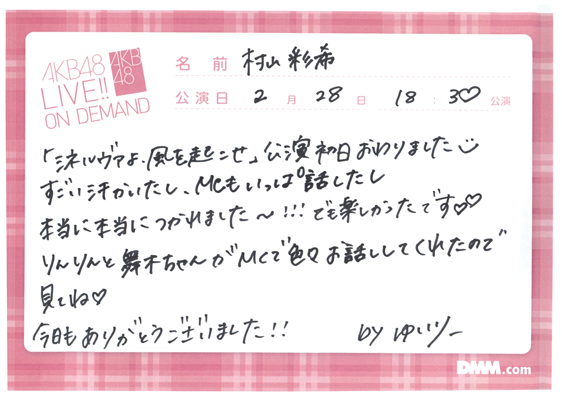 AKB48
LIVE!!
ON DEMAND
AKB
48
名 前 村山彩希
公演日 2 月 28 日 18 : 30♡ 公演
「ミネルヴァよ、風を起こせ」公演初日おわりました
すごい汗かいたし、MCもいっぱい話したし
本当に本当につかれました〜!!! でも楽しかったです♡♡
りんりんと舞木ちゃんがMCで色々お話ししてくれたので
見てね♡
今日もありがとうございました!! by ゆいりー
DMM.com